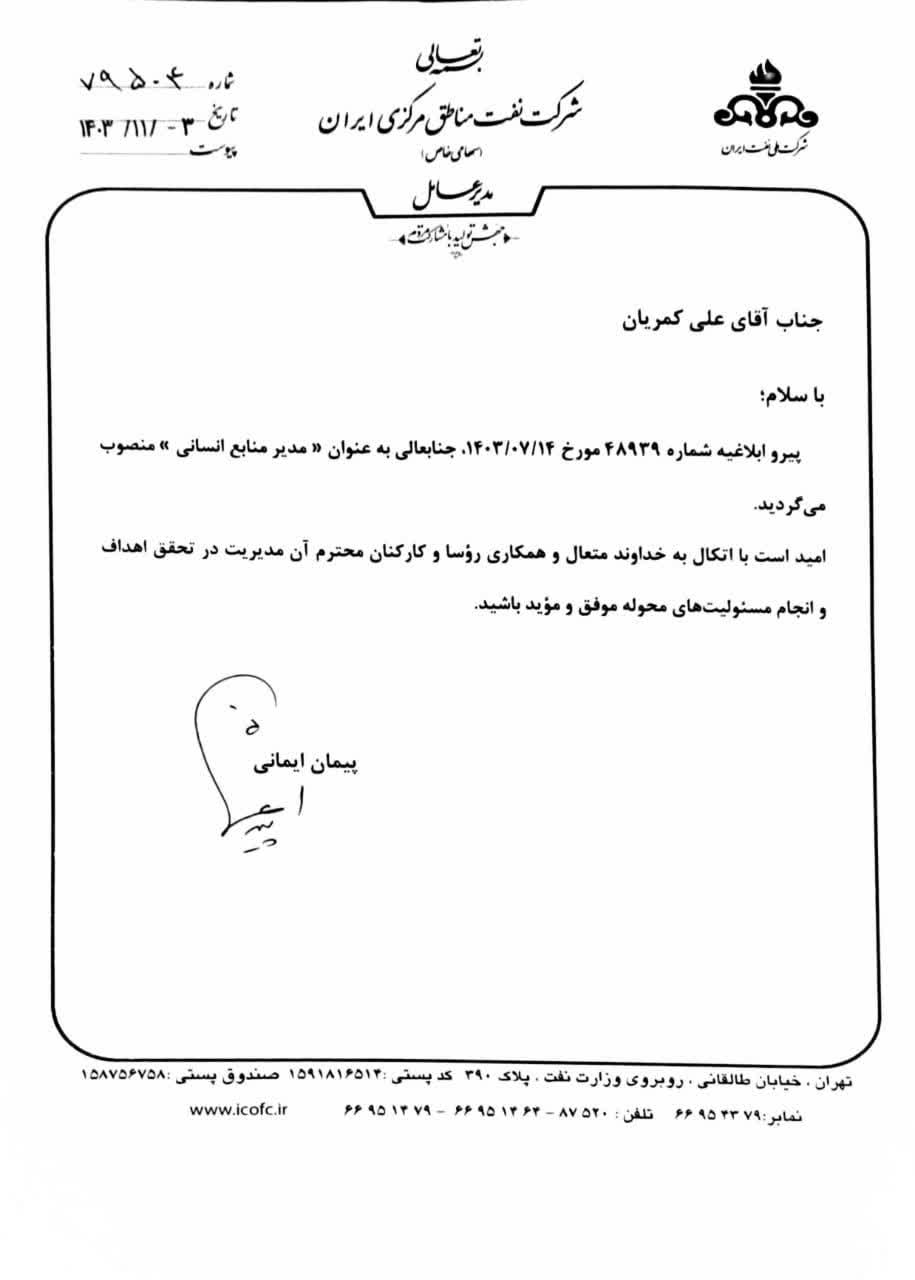 بسمه تعالی
شرکت نفت مناطق مرکزی ایران
(سهامی خاص)
مدیر عامل
جهش تولید با مشارکت مردم
شرکت ملی نفت ایران
شماره ۷۹۵۰۴
تاریخ ۱۴۰۳/۱۱/۰۳
پیوست
جناب آقای علی کمریان
با سلام؛
پیرو ابلاغیه شماره ۴۸۹۳۹ مورخ ۱۴۰۳/۰۷/۱۴، جنابعالی به عنوان « مدیر منابع انسانی » منصوب
می‌گردید.
امید است با اتکال به خداوند متعال و همکاری رؤسا و کارکنان محترم آن مدیریت در تحقق اهداف
و انجام مسئولیت‌های محوله موفق و مؤید باشید.
پیمان ایمانی
تهران ، خیابان طالقانی ، روبروی وزارت نفت ، پلاک ۳۹۰ کد پستی :۱۵۹۱۸۱۶۵۱۴ صندوق پستی :۱۵۸۷۵۶۷۵۸
نمابر:۶۶۹۵۴۳۷۹ تلفن : ۸۷۵۲۰ – ۶۶۹۵۱۴۶۴ – ۶۶۹۵۱۴۷۹ www.icofc.ir